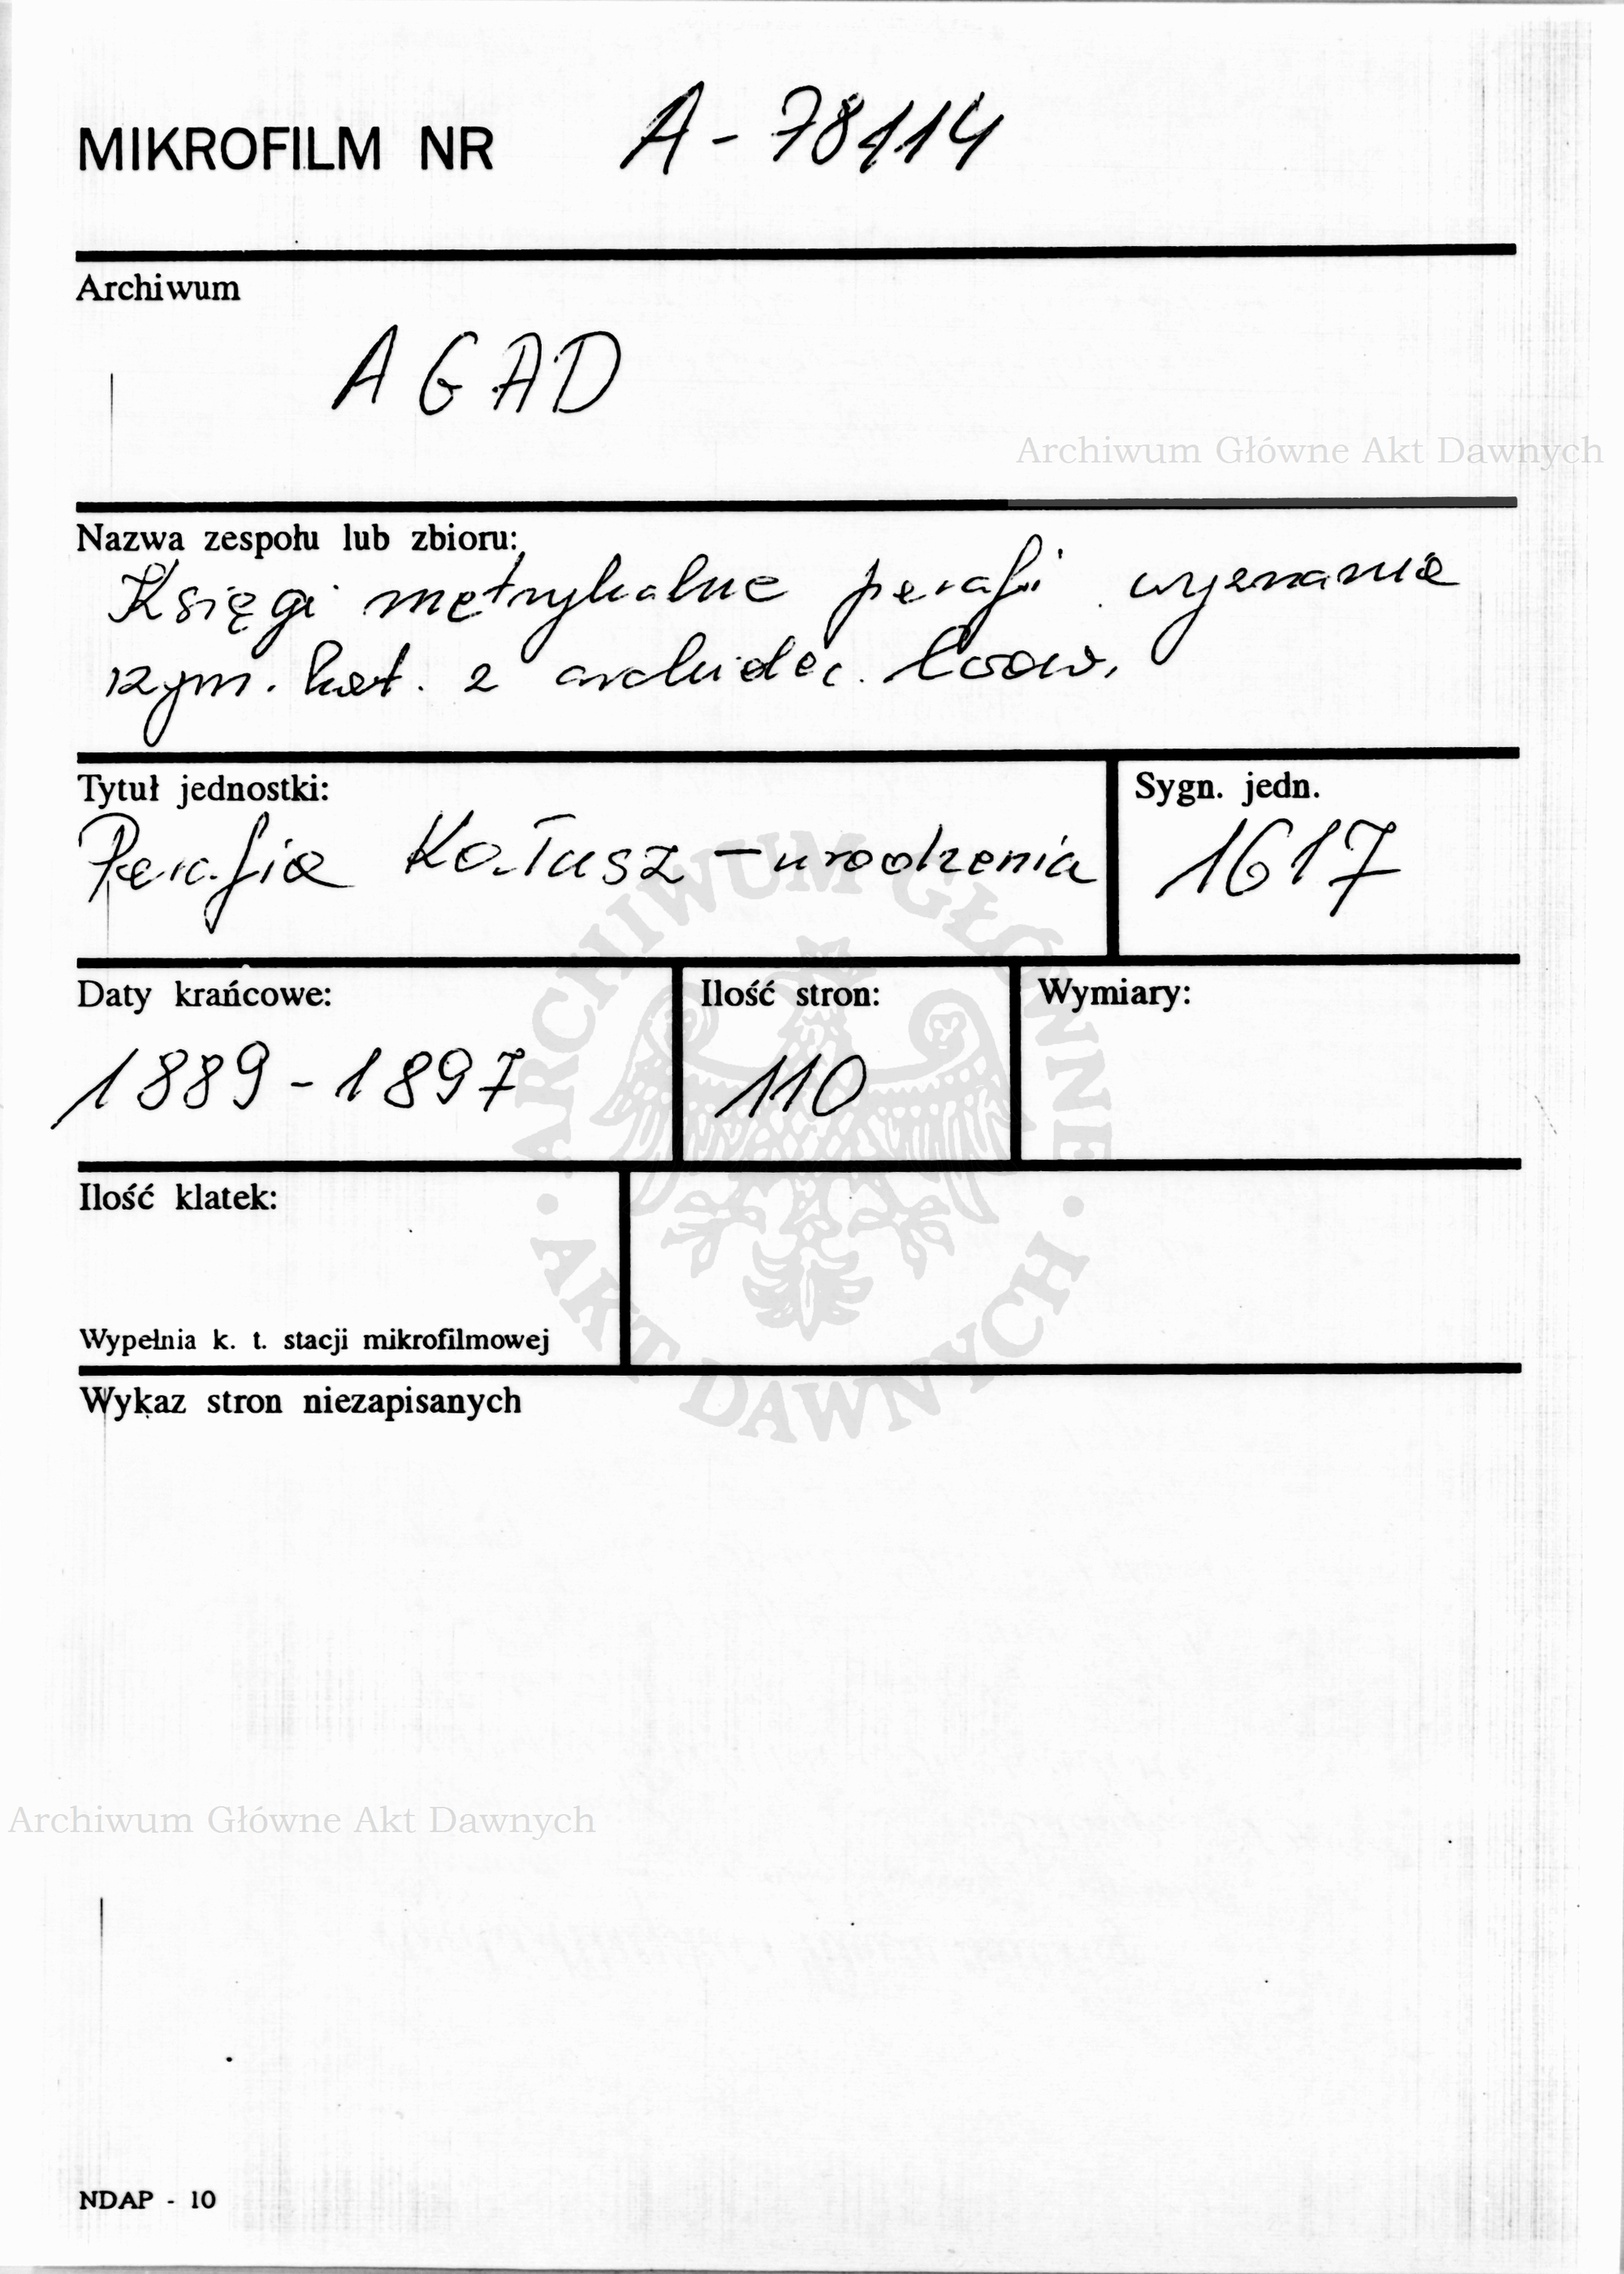 MIKROFILM NR A-78114
Archiwum
AGAD
Archiwum Główne Akt Dawnych
Nazwa zespołu lub zbioru:
Księgi metrykalne parafii wyznania
rzym. kat. z archidiec. Lwow.
Tytuł jednostki:
Sygn. jedn.
Parafia Kałusz - urodzenia
1617
Daty krańcowe:
Ilość stron:
Wymiary:
1889-1897
110
Ilość klatek:
Wypełnia k. t. stacji mikrofilmowej
Wykaz stron niezapisanych
ARCHIWUM GŁÓWNE
• AKT DAWNYCH •
Archiwum Główne Akt Dawnych
NDAP - 10